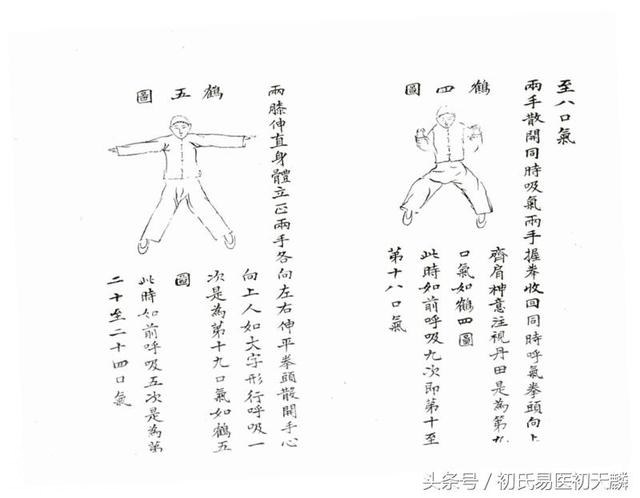 至八口氣
兩手散開同時吸氣兩手握拳收回同時呼氣拳頭向上
齊肩神意注視丹田是為第九
口氣如鶴四圖
此時如前呼吸九次即第十至
第十八口氣
鶴四圖
兩膝伸直身體立正兩手各向左右伸平拳頭散開手心
向上人如大字形行呼吸一
次是為第十九口氣如鶴五
圖
此時如前呼吸五次是為第
二十至二十四口氣
鶴五圖
头条号/初氏易医初天麟